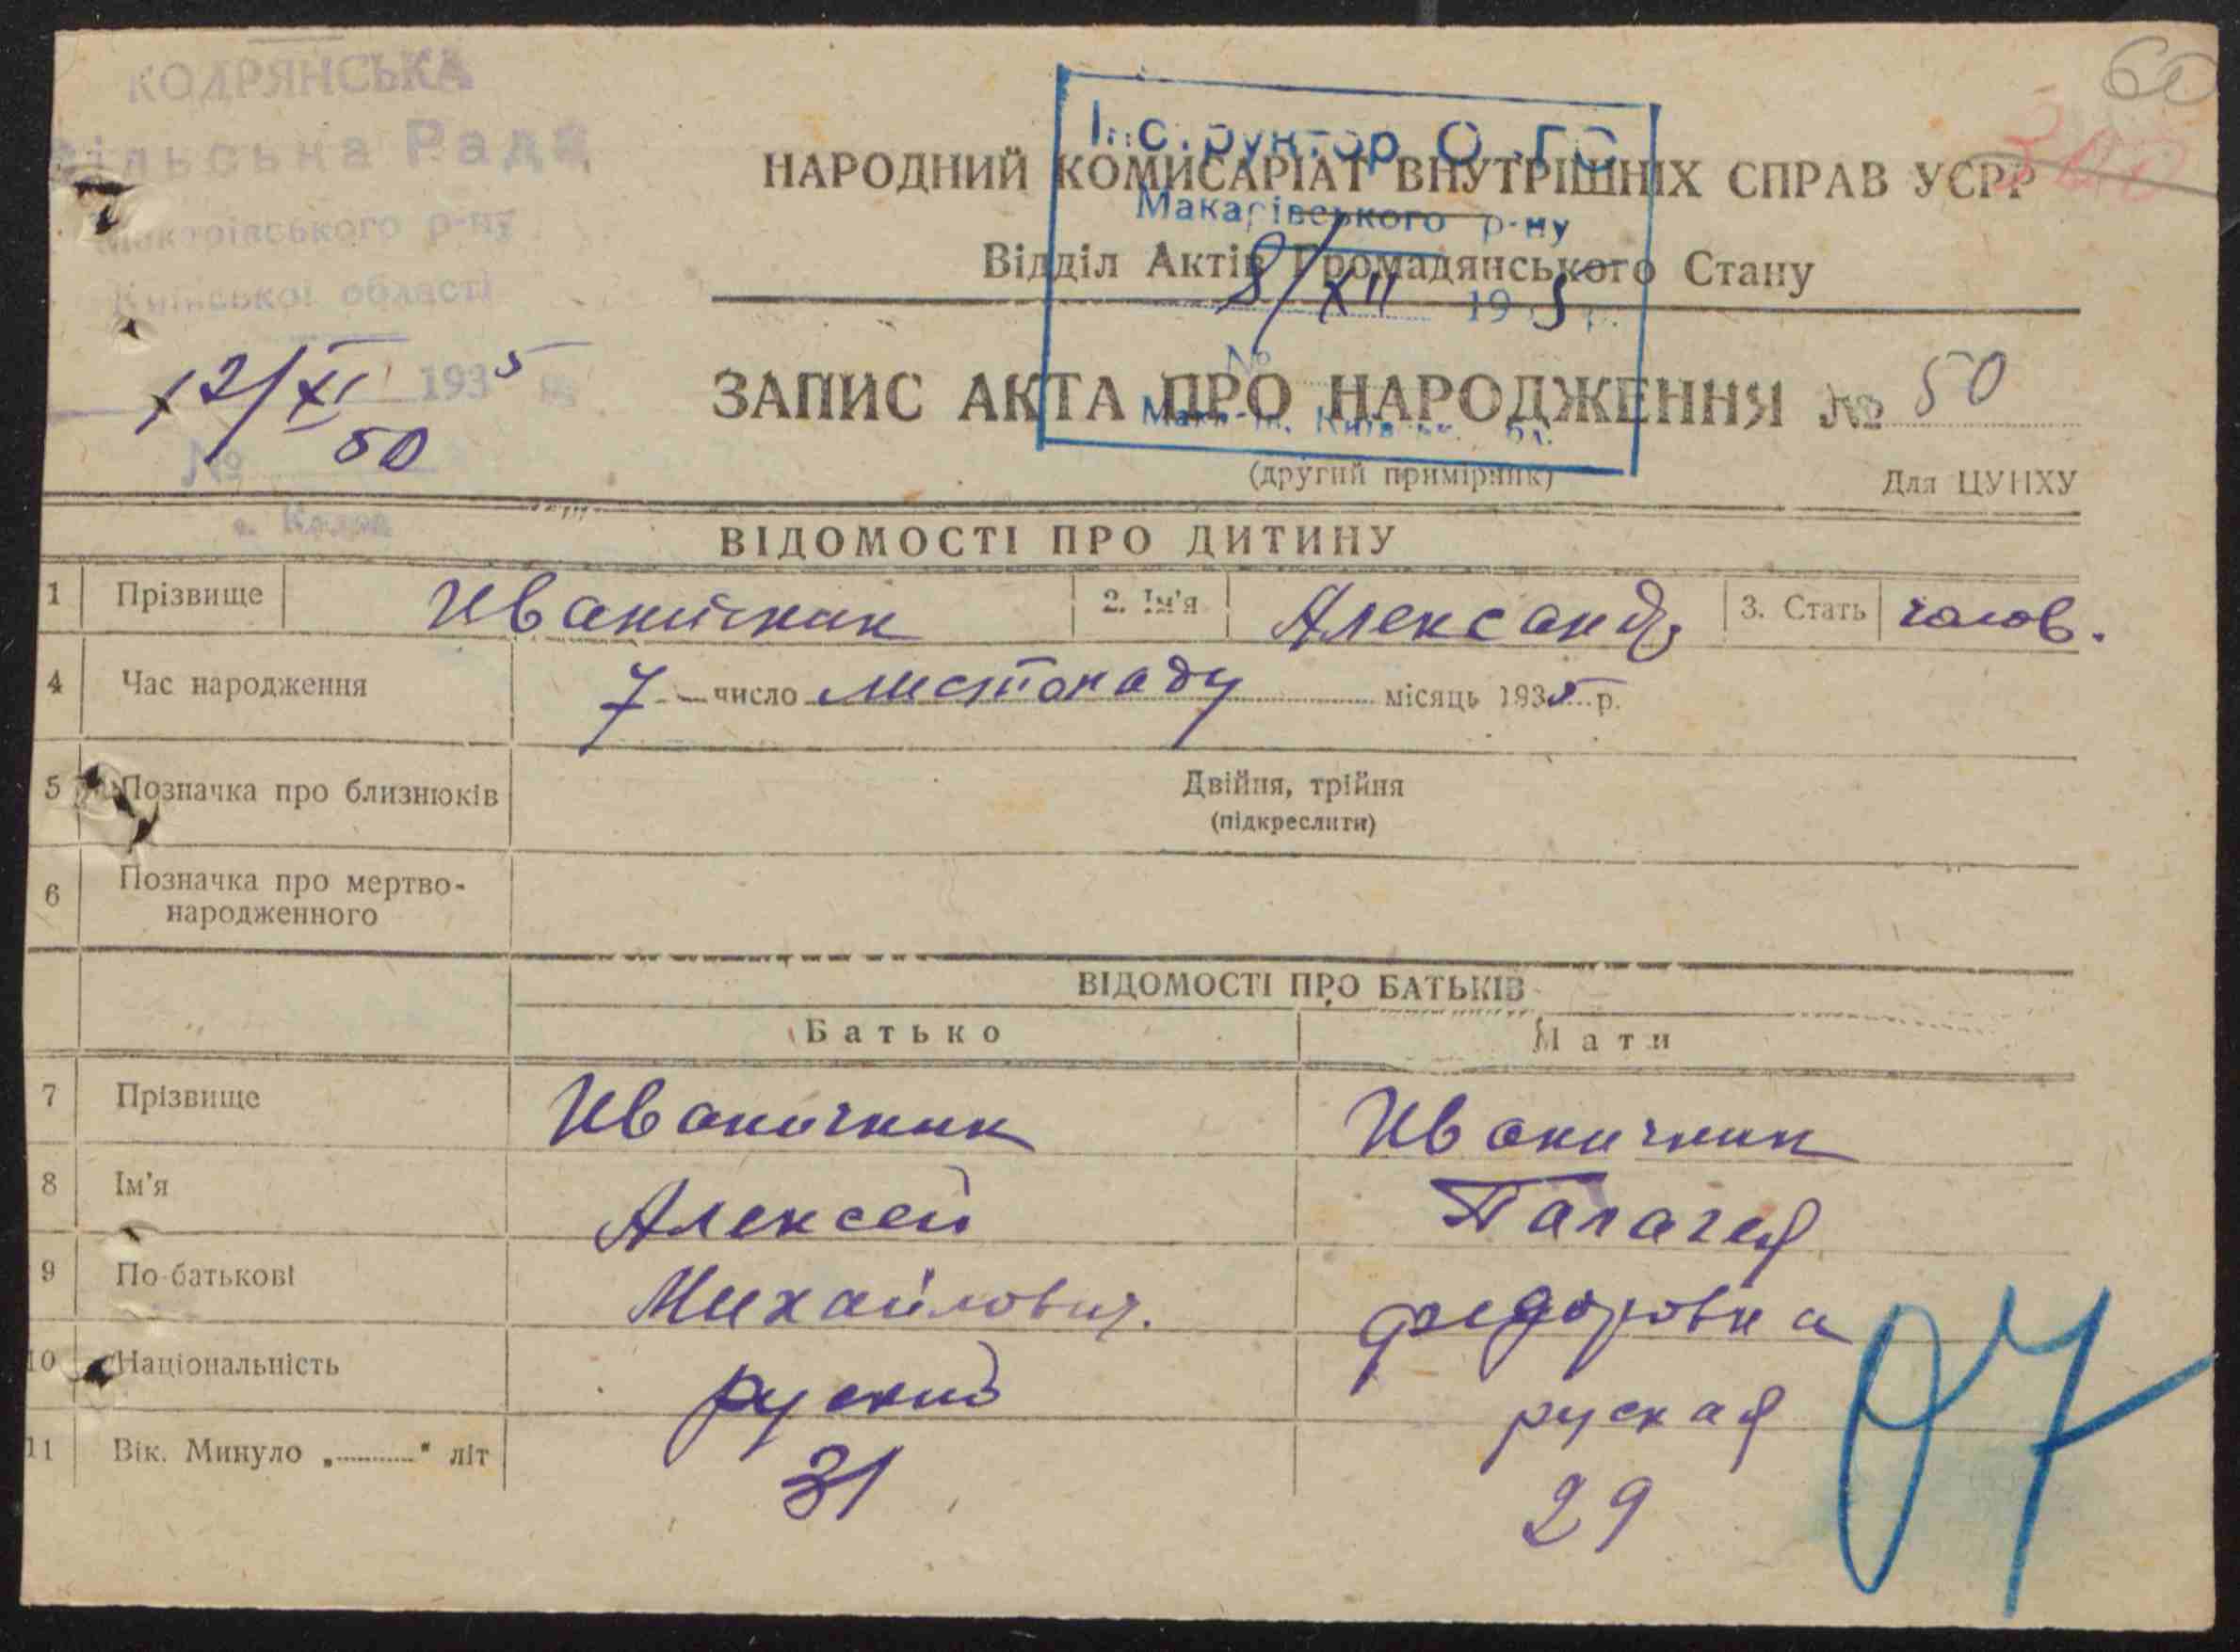 КОДРЯНСЬКА
сільська Рада
Макарівського р-ну
Київської області
12/XI 1935
№ 50
с. Кодра
60
Інструктор О.
Макарівського р-ну
8/XII 19 5 р.
№
НАРОДНИЙ КОМИСАРІАТ ВНУТРІШНІХ СПРАВ УСРР
Відділ Актів Громадянського Стану
ЗАПИС АКТА ПРО НАРОДЖЕННЯ № 50
(другий примірник)
Для ЦУНХУ
ВІДОМОСТІ ПРО ДИТИНУ
1 Прізвище Иваничкин 2. Ім'я Александр 3. Стать чолов.
4 Час народження 7 число листопаду місяць 1935 р.
5 Позначка про близнюків Двійня, трійня
(підкреслити)
6 Позначка про мертво-
народженного
ВІДОМОСТІ ПРО БАТЬКІВ
Батько Мати
7 Прізвище Иваничкин Иваничкин
8 Ім'я Алексей Палагея
9 По-батькові Михайлович. Федоровна
10 Національність руский руская
11 Вік. Минуло „ " літ 31 29
07